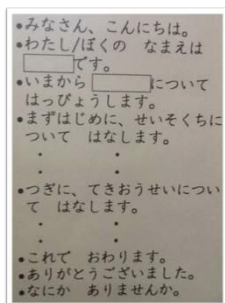 •みなさん、こんにちは。
•わたし/ぼくの なまえは
です。
•いまから について
はっぴょうします。
•まずはじめに、せいそくちに
ついて はなします。
・ ・
・ ・
•つぎに、てきおうせいについ
て はなします。
・ ・
・ ・
•これで おわります。
•ありがとうございました。
•なにか ありませんか。